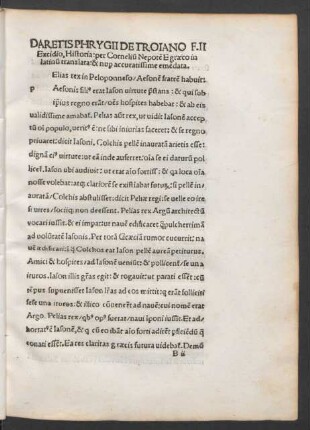 DARETIS PHRYGII DE TROIANO F.II
Excidio, Historia: per Corneliũ Nepotẽ E græco in
latinũ translata: & nup accuratissime emẽdata.
Elias rex in Peloponneso / Aesonẽ fratrẽ habuit:
p Aesonis filiꝰ erat Iason uirtute p̃stans : & qui sub
ipsius regno erãt / oẽs hospites habebat : & ab eis
ualidissime amabat̃. Pelias aũt rex, ut uidit Iasonẽ accep
tũ oĩ populo, ueritꝰ ẽ: ne sibi iniurias faceret: & se regno
priuaret: dicit iasoni, Colchis pellẽ inauratã arietis esset
dignã eiꝰ uirtute: ut eã inde auferret: oĩa se ei daturũ pol
liceť. Iason ubi audiuit : ut erat aĩo fortissi : & qa loca oĩa
nosse volebat: atq; clariorẽ se existiabat futuꝝ: si pellẽ in
auratã / Colchis abstulisset: dicit Peliæ regi: se uelle eo ire
si uires / sociiq; non deessent. Pelias rex Argũ architectũ
vocari iussit. Et ei imperat ut nauẽ ædificaret q̃pulcherrimã
ad volũtatẽ Iasonis. Per totã Græciã rumor cucurrit: na
uẽ ædificari: q̃ Colchos eat Iason pellẽ aureã petiturus.
Amici & hospites / ad Iasonẽ ueniũt: & pollicent̃ / se una
ituros. Iason illis gr̃as egit : & rogauit: ut parati essent : cũ
ei tẽpus supuenisset Iason l̃ras ad eos mittit: q erãt solliciti
sese una ituros: & illico cõuenerẽt ad nauẽ: cui nomẽ erat
Argo. Pelias rex / qbꝰ opꝰ fuerat / naui iponi iussit. Et ad
horratꝰ ẽ Iasonẽ, & q cũ eo ibãt aĩo forti adirẽt pficiẽdũ q̃
conati essẽt. Ea res claritas græcis futura uidebať. Demũ
B ii